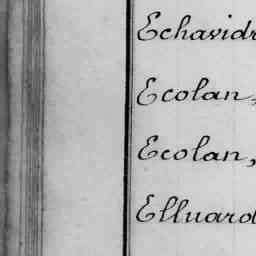 Echavidr
Ecolan,
Ecolan,
Elluard